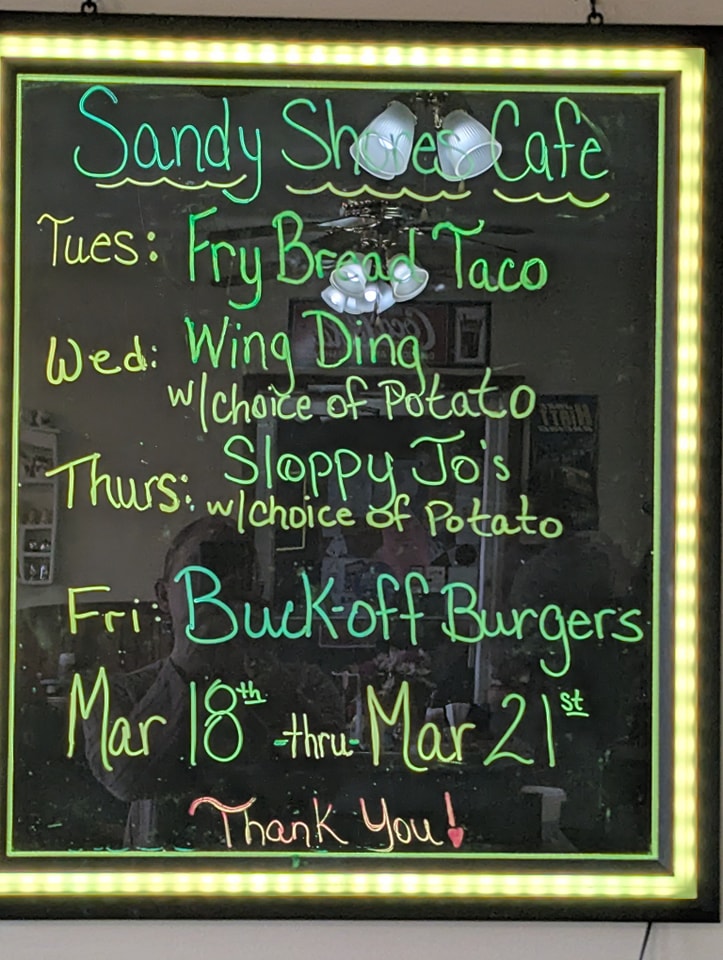 Sandy Shores Cafe
Tues: Fry Bread Taco
Wed: Wing Ding
w/choice of Potato
Thurs: Sloppy Jo's
w/choice of Potato
Fri: Buck-off Burgers
Mar 18th -thru- Mar 21st
Thank You!